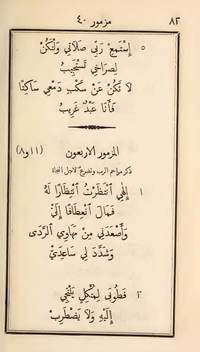 ٨٢ مزمور ٤٠
٥ إِسْتَمِعْ رَبِّي صَلَاتِي وَلْتَكُنْ
لِصُرَاخِي تَسْتَجِيبُ
لَا تَكُنْ عَنْ سَكْبِ دَمْعِي سَاكِتًا
فَأَنَا عَبْدٌ غَرِيبُ
المزمور الاربعون (١١و٨)
ذكر مراحم الرب وتضرع لاجل النجاة
١ إِلٰهِيَ ٱنْتَظَرْتُ ٱنْتِظَارًا لَهُ
فَمَالَ ٱنْعِطَافًا إِلَيَّ
وَأَصْعَدَنِي مِنْ مَهَاوِي ٱلرَّدَى
وَشَدَّدَ لِي سَاعِدَيَّ
٢ فَطُوبَى لِمُتَّكِلٍ يَلْتَجِي
إِلَيْهِ وَلَا يَضْطَرِبْ